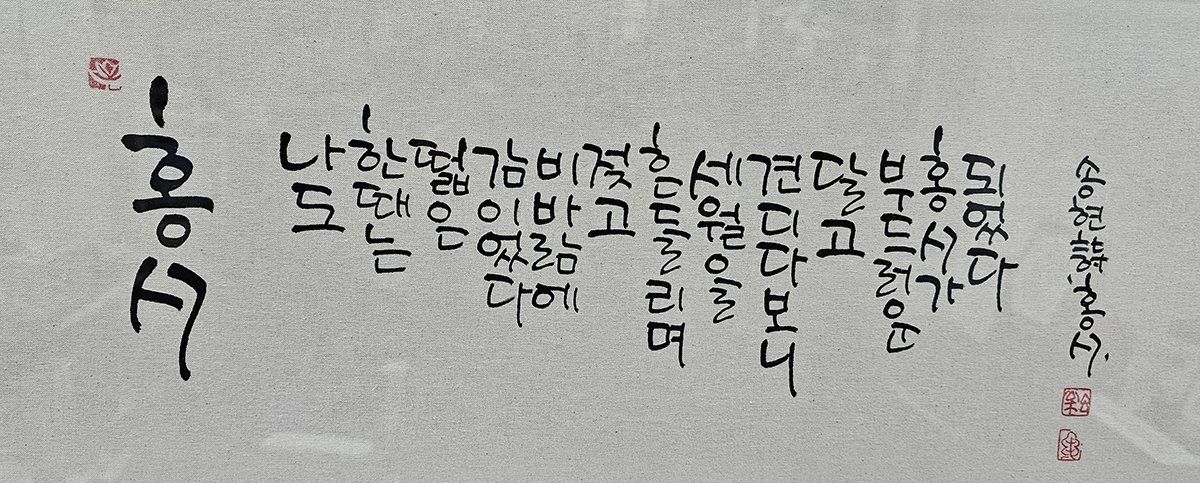 홍시
나도
한때는
떫은
감이었다
비바람에
젖고
흔들리며
세월을
견디다보니
달고
부드러운
홍시가
되었다
송현 詩 홍시.